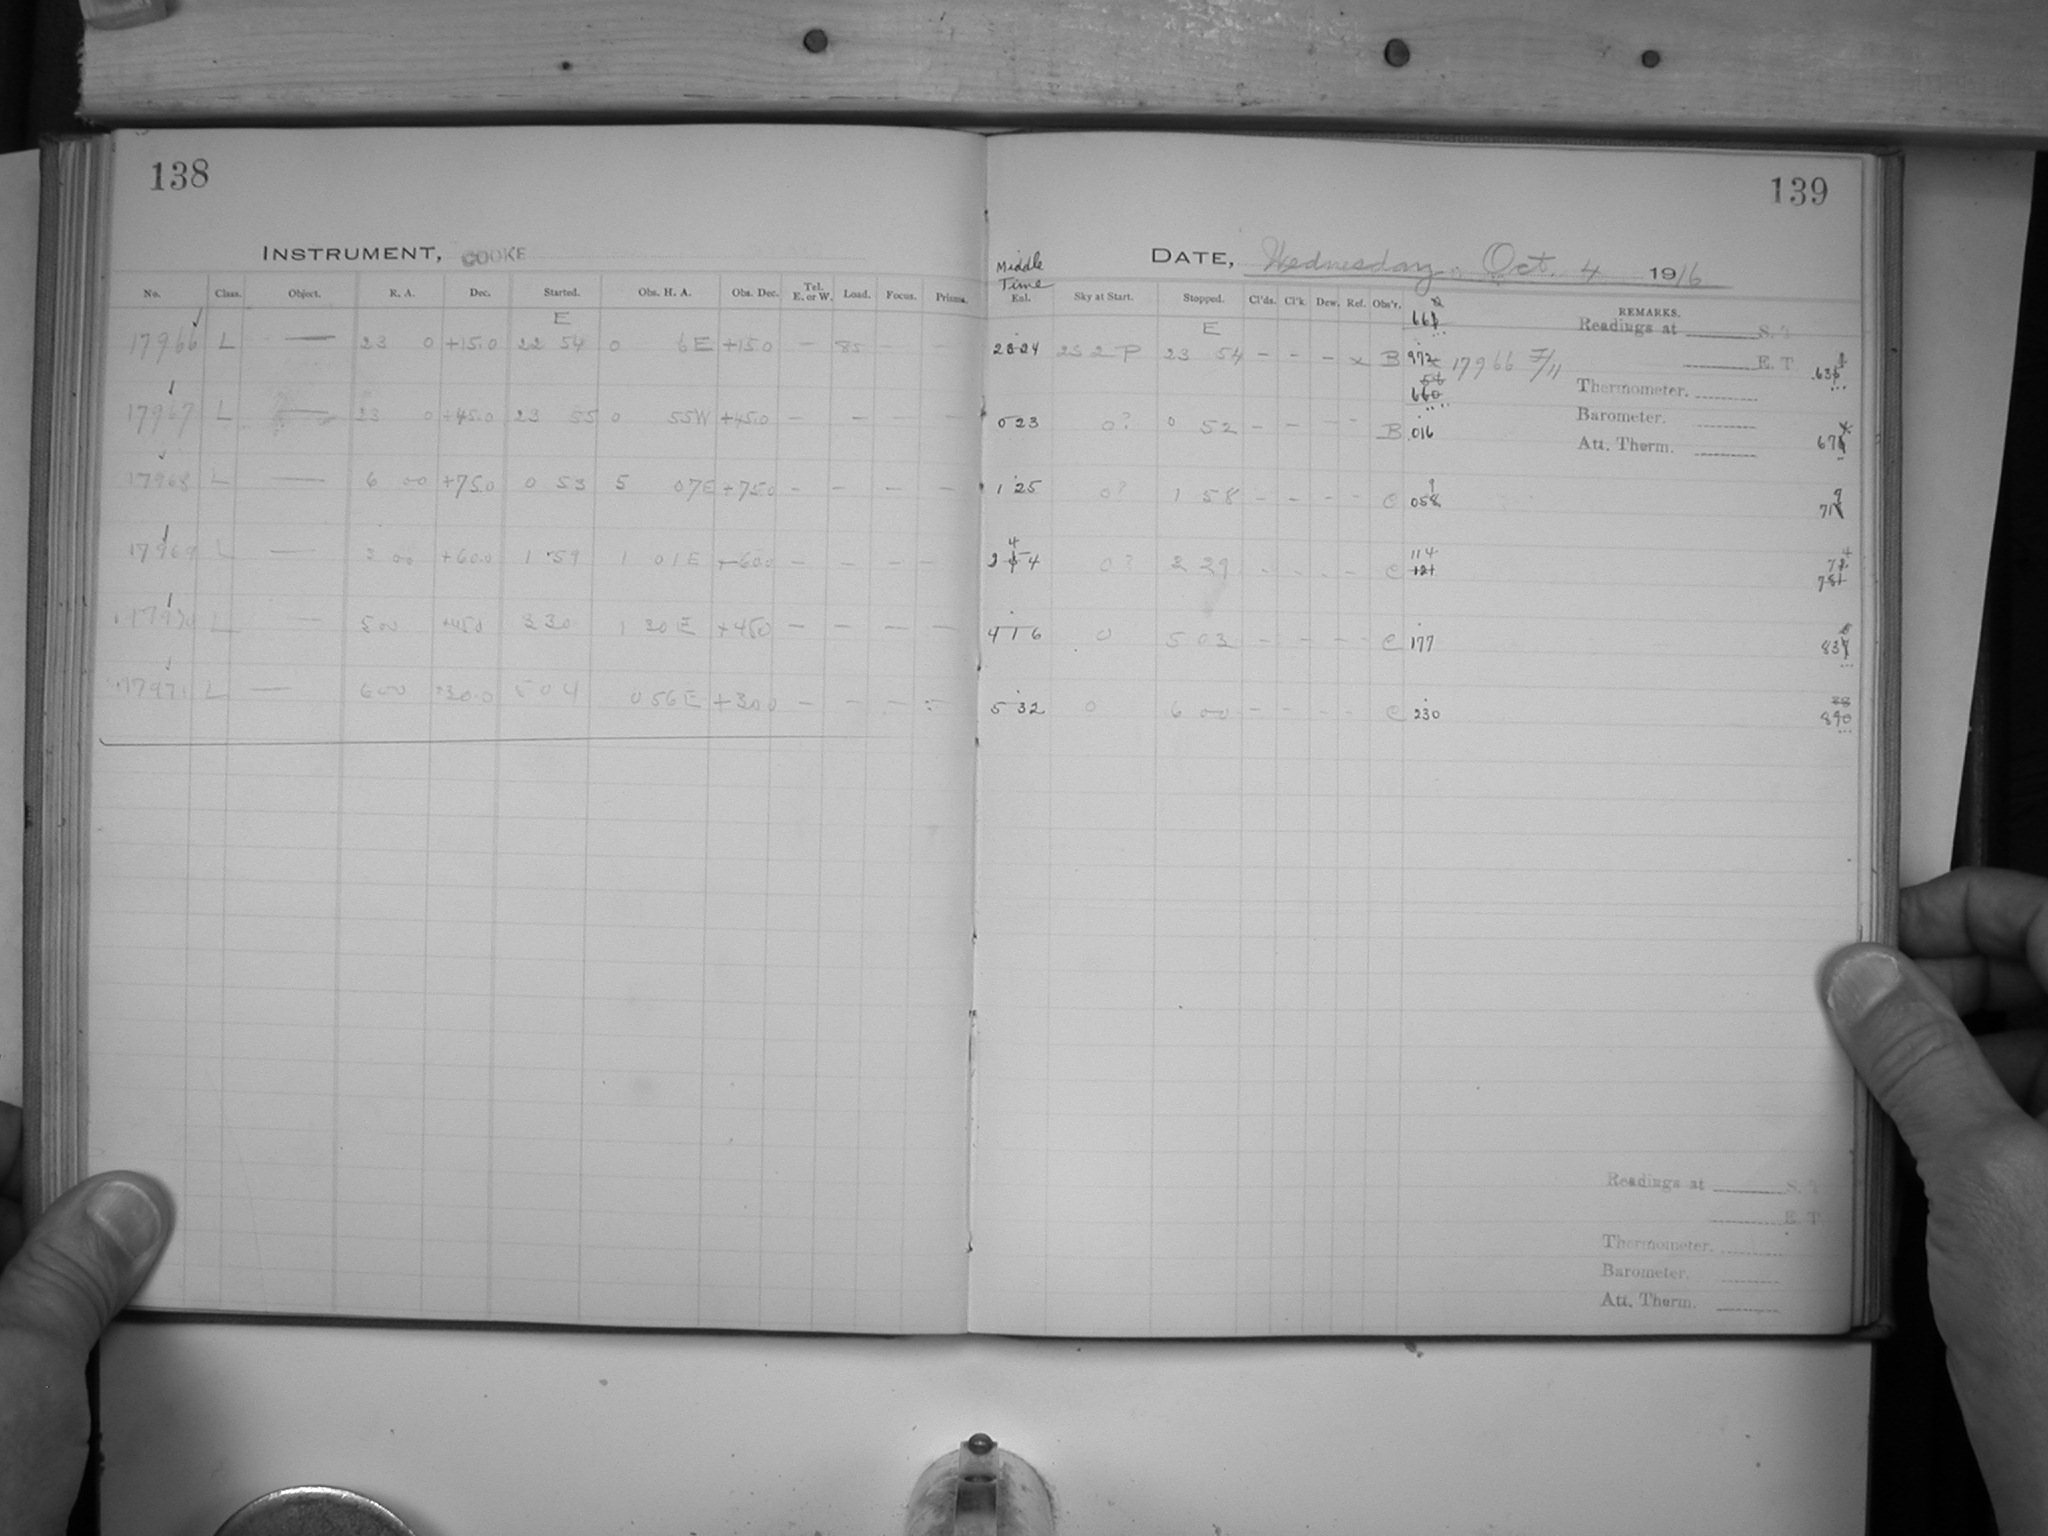 138
139
INSTRUMENT, COOKE
Middle Time
DATE, Wednesday Oct. 4 1916
No. Class. Object. R. A. Dec. Started. Obs. H. A. Obs. Dec. Tel. E. or W. Load. Focus. Prisms.
Exl. Sky at Start. Stopped. Cl'ds. Cl'k. Dew. Ref. Obs'r. REMARKS.
E
E
Readings at S. T
17966 L — 23 0 +15.0 22 54 0 6E +15.0 — 85 — —
23 24 23 2 P 23 54 – – – x B 972 17966 F/11
E. T
660
Thermometer.
Barometer.
17967 L — 23 0 +45.0 23 55 0 55W +45.0 — — — —
0 23 0? 0 52 – – – - B .016
Att. Therm.
17968 L — 6 00 +75.0 0 53 5 07E +75.0 – – – –
1 25 0? 1 58 – – – - C
17969 L — 3 00 +60.0 1 59 1 01E +60.0 – – – –
0? 3 29 - - - - C 114
17970 L — 5 00 +45.0 3 30 1 30 E +45.0 — — — —
4 16 0 5 03 – – – - C 177
17971 L — 6 00 +30.0 5 04 0 56 E +30.0 – – – –
5 32 0 6 00 – – - - C 230
890
Readings at S. T
E. T
Thermometer.
Barometer.
Att. Therm.